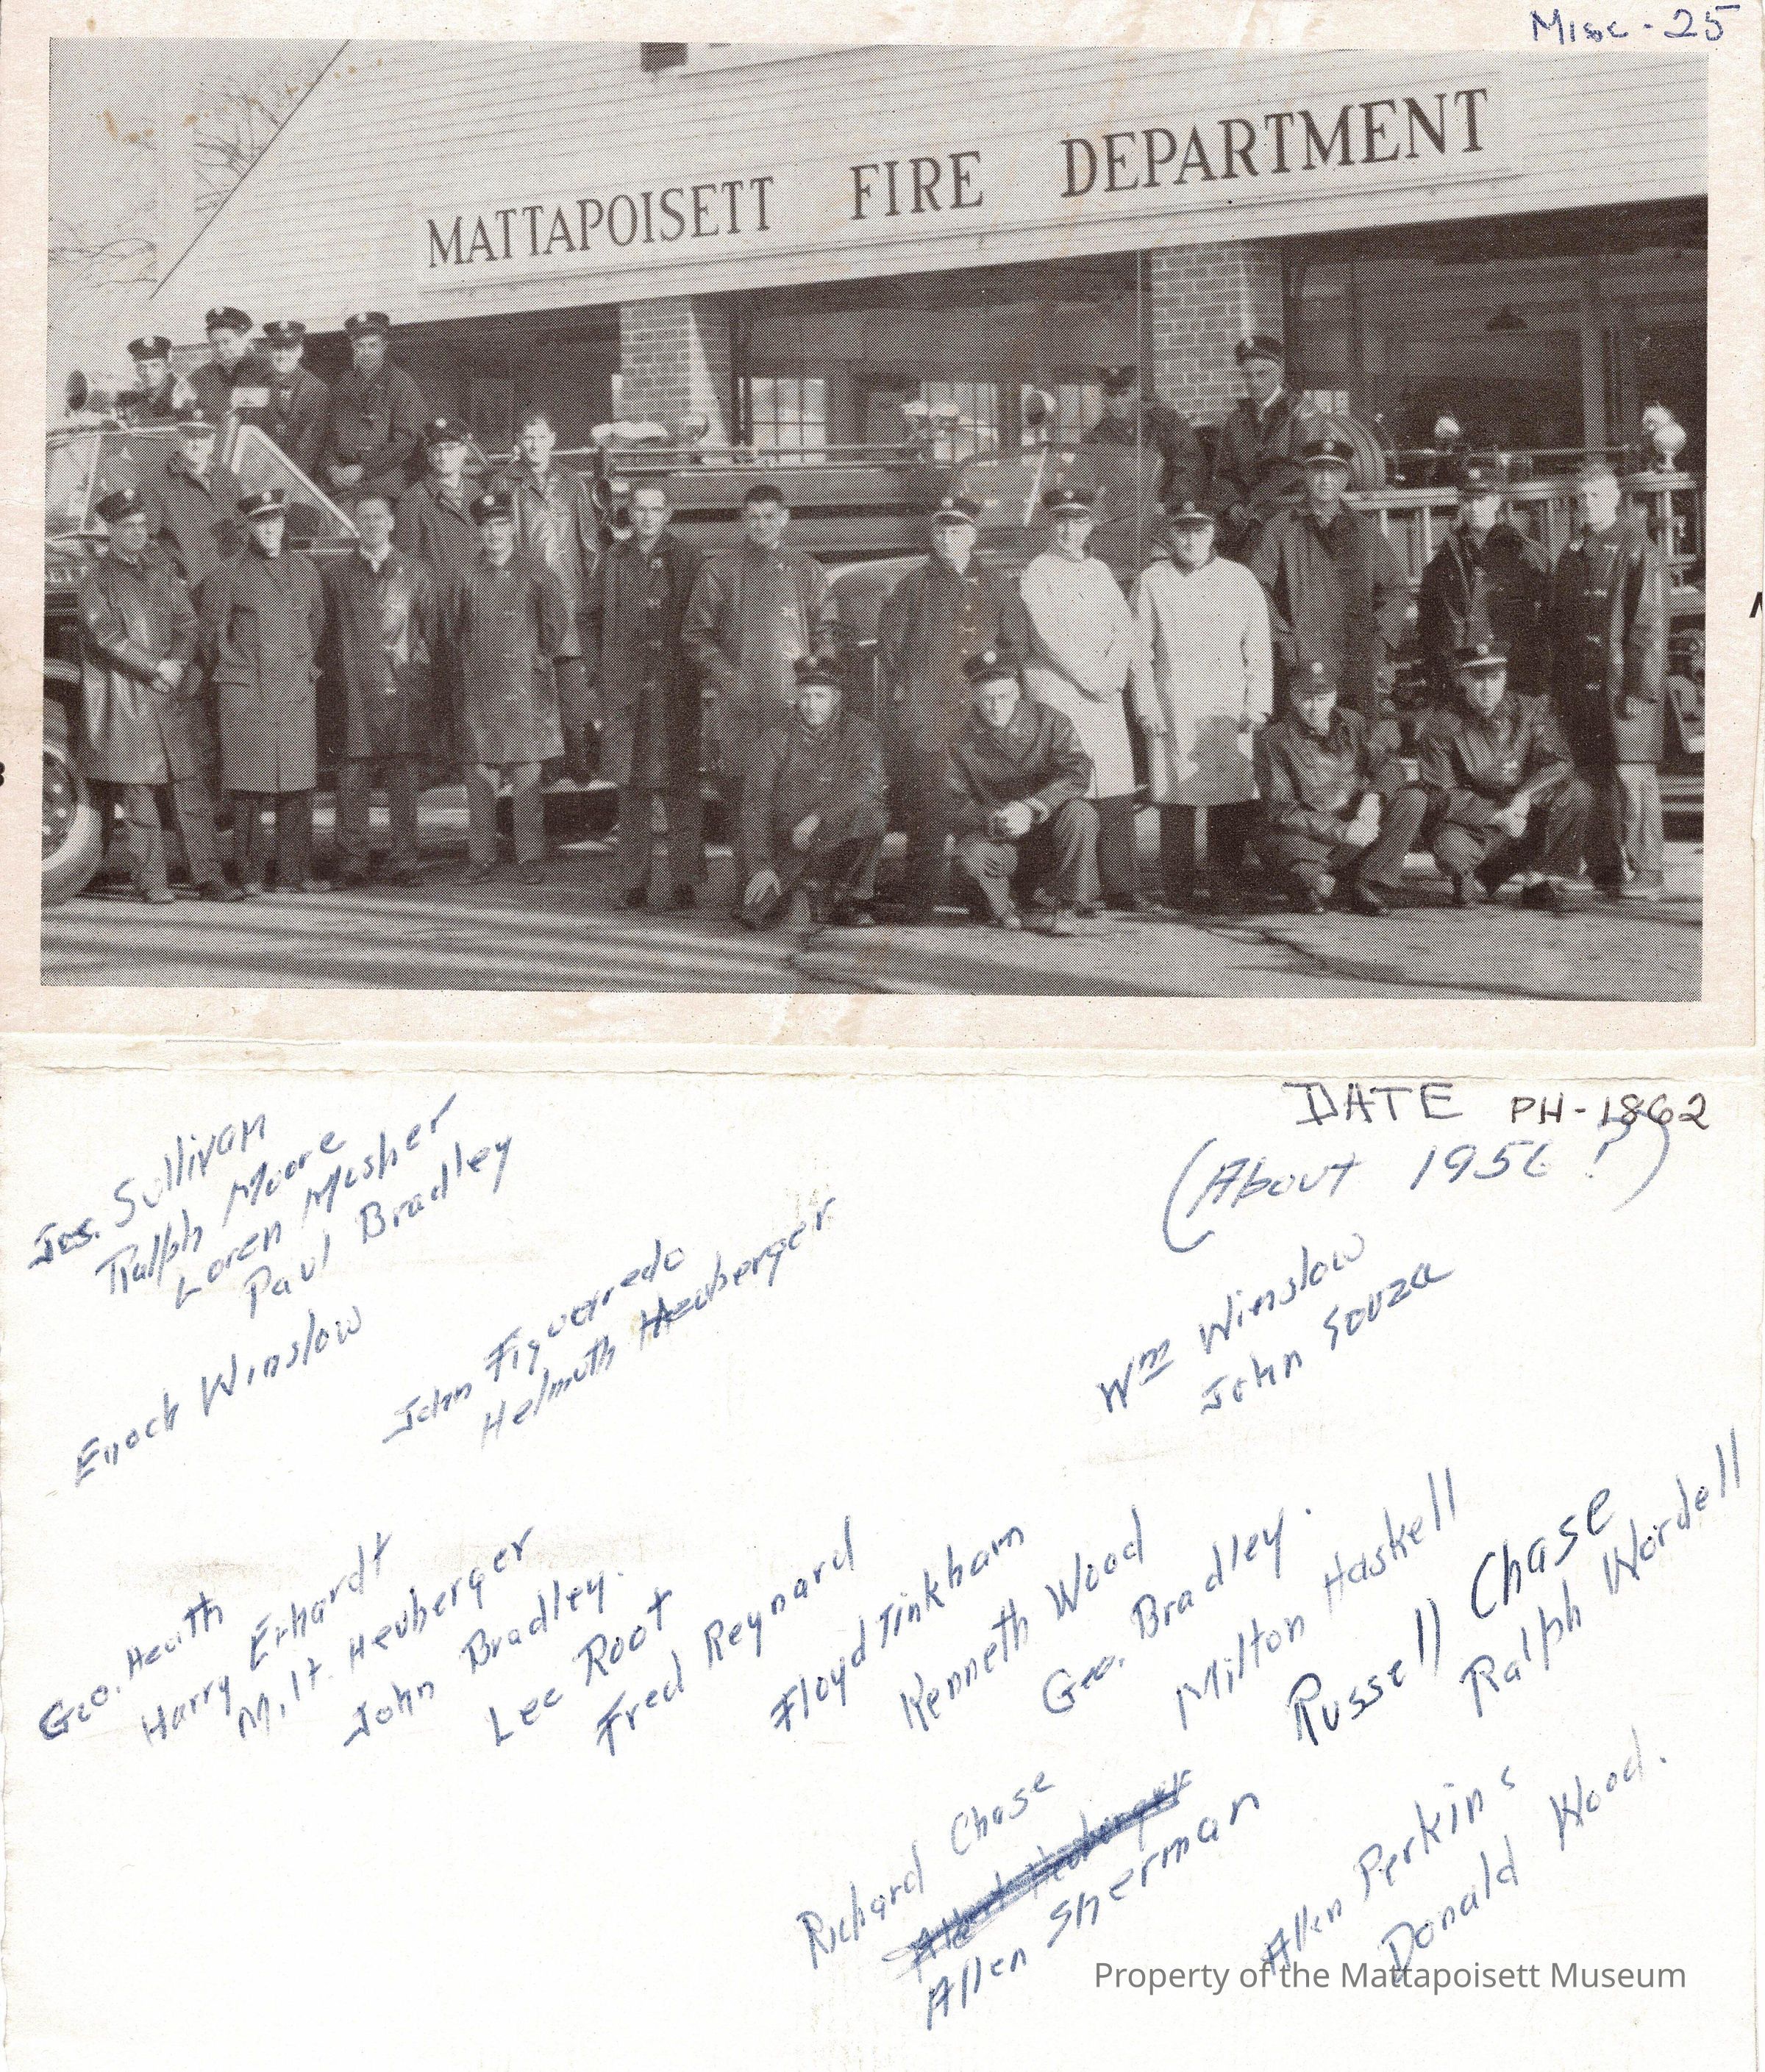 Misc - 25
MATTAPOISETT FIRE DEPARTMENT
DATE PH-1862
(About 1956?)
Jos. Sullivan
Ralph Moore
Loren Mosher
Paul Bradley
Enoch Winslow
John Figuerredo
Helmuth Heuberger
Wm Winslow
John Souza
Geo. Heath
Harry Erhardt
Milt. Heuberger
John Bradley.
Lee Root
Fred Reynard
Floyd Tinkham
Kenneth Wood
Geo. Bradley.
Milton Haskell
Russell Chase
Ralph Wordell
Richard Chase
Allen Sherman
Allen Perkins
Donald Wood.
Property of the Mattapoisett Museum